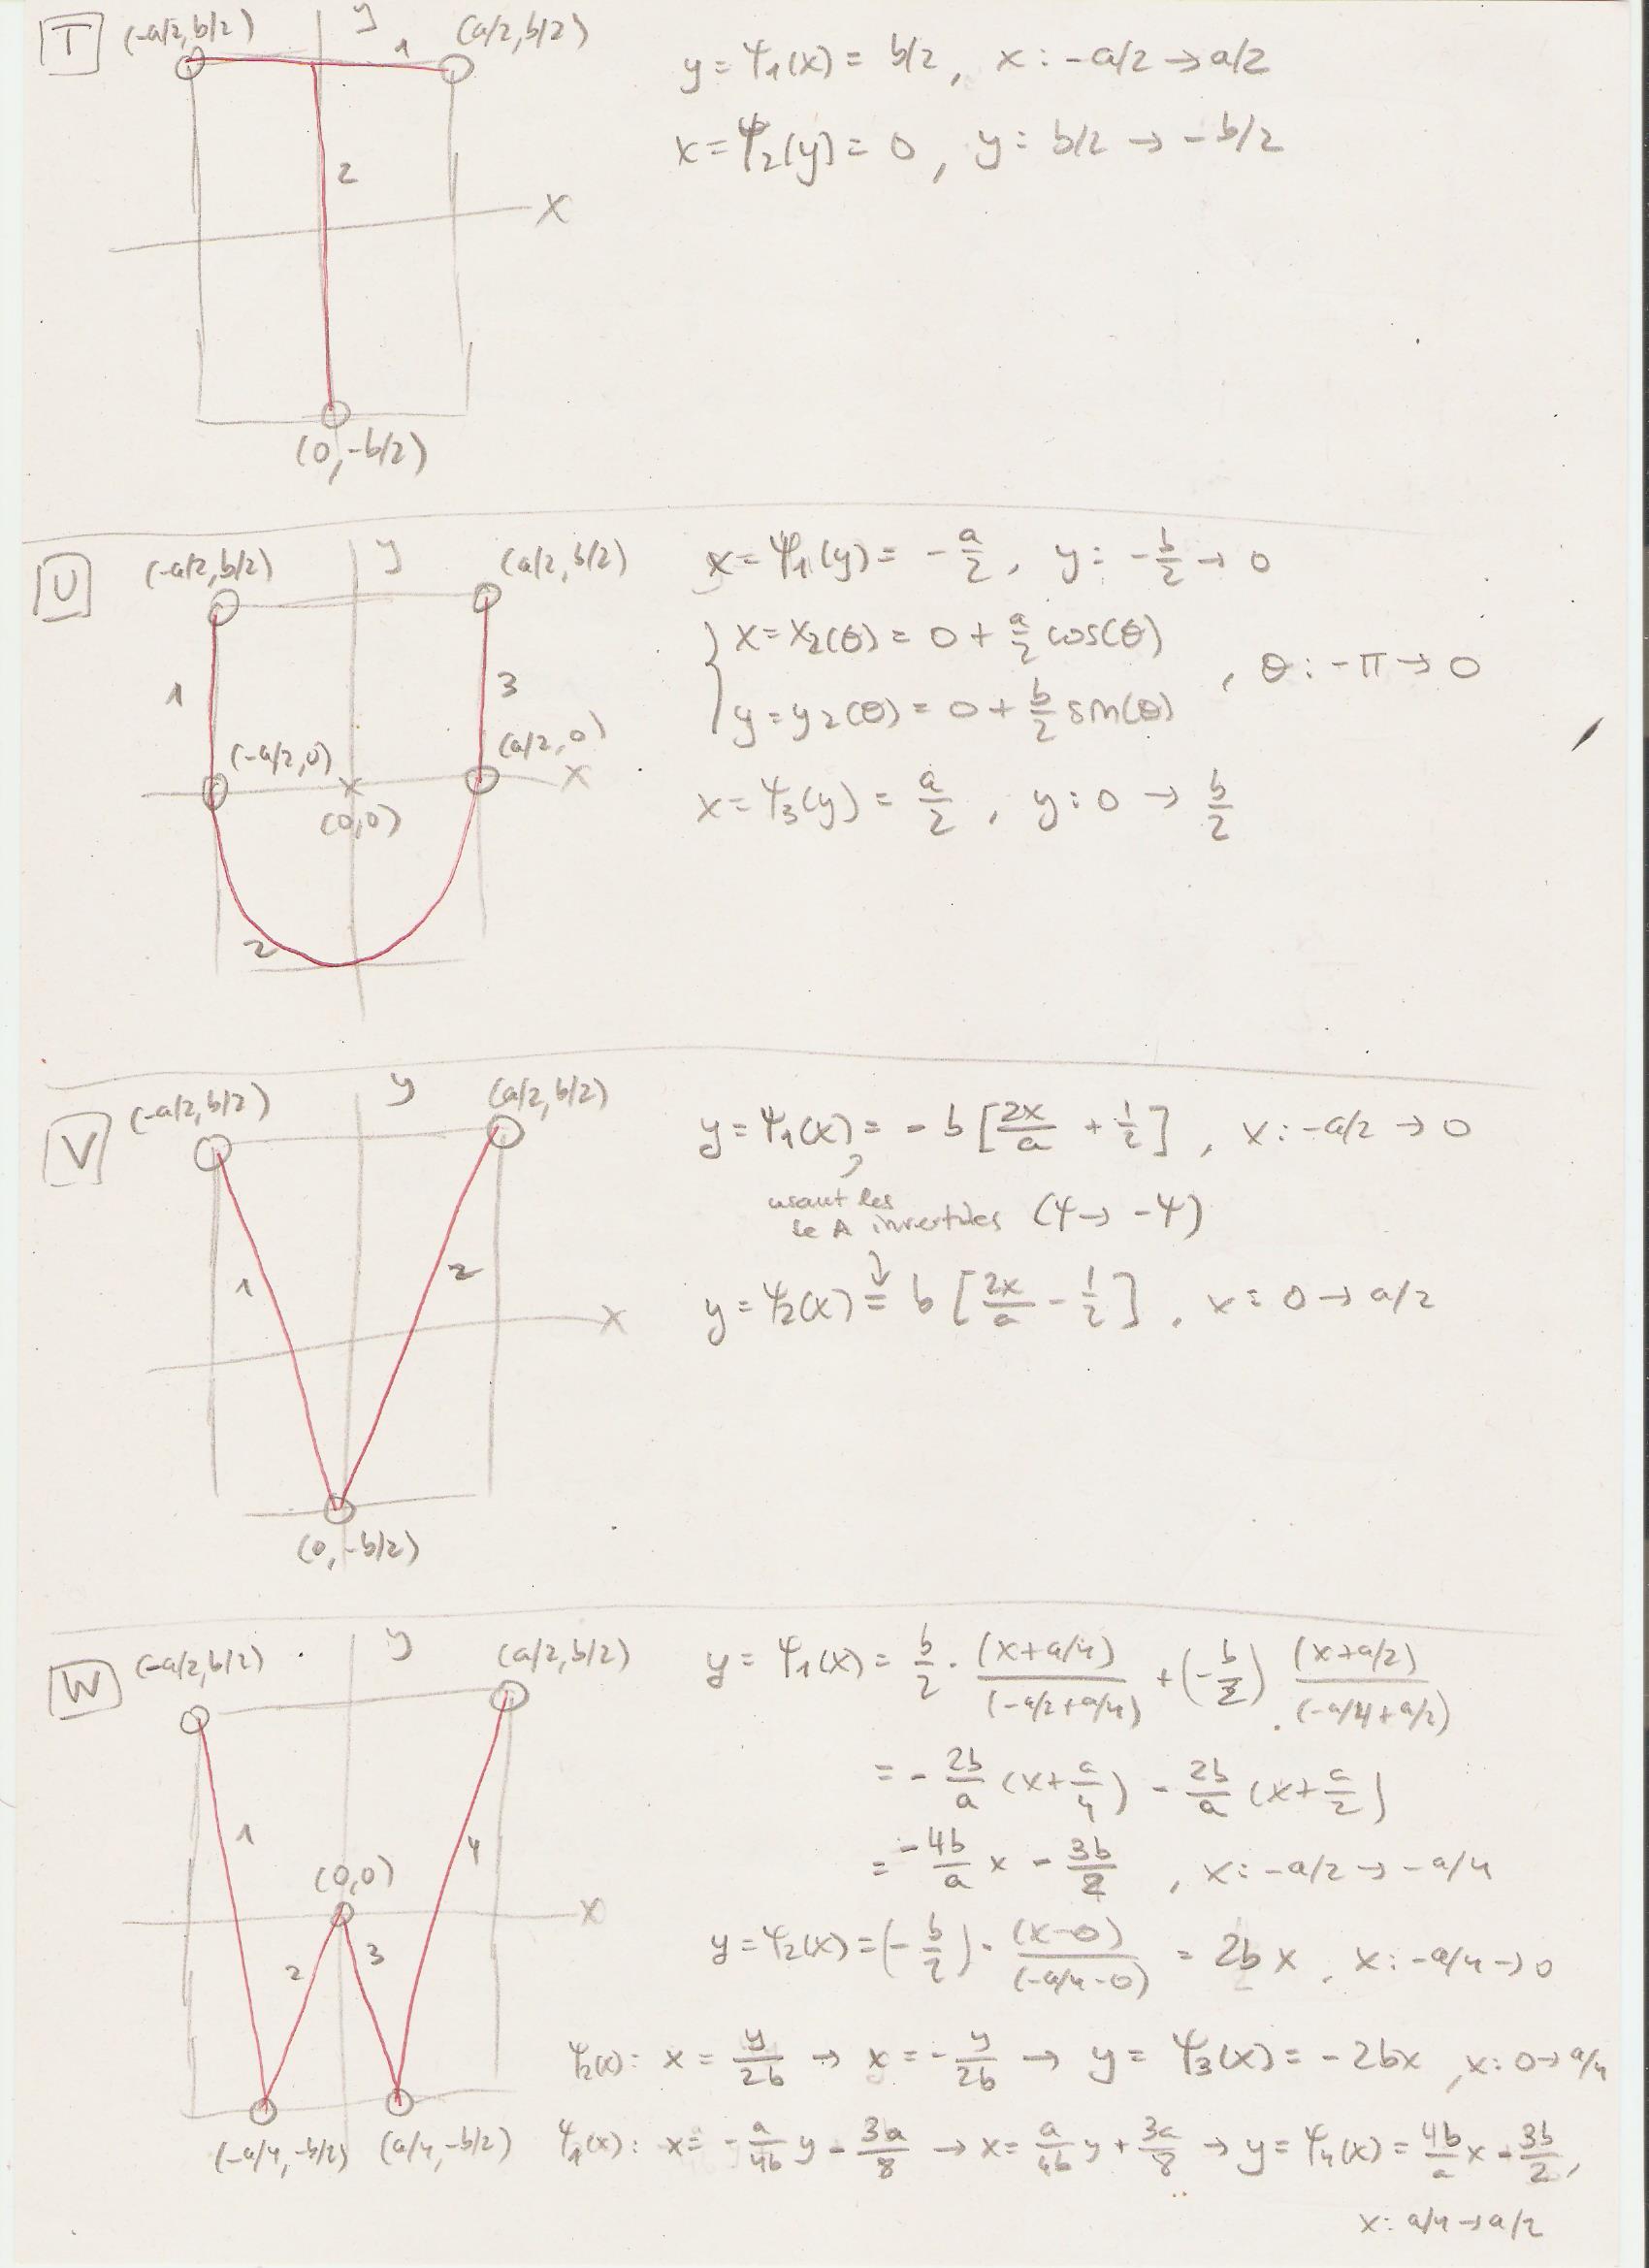 T
(-a/2, b/2) y 1 (a/2, b/2)
2
x
(0, -b/2)
y = Ψ₁(x) = b/2, x: -a/2 → a/2
x = Ψ₂(y) = 0, y: b/2 → -b/2
U
(-a/2, b/2) y (a/2, b/2)
1 3
(-a/2, 0) (a/2, 0)
x
(0,0)
2
x = Ψ₁(y) = - a/2, y: - b/2 → 0
{ x = x₂(θ) = 0 + a/2 cos(θ)
y = y₂(θ) = 0 + b/2 sin(θ) , θ: -π → 0
x = Ψ₃(y) = a/2, y: 0 → b/2
V
(-a/2, b/2) y (a/2, b/2)
1 2
x
(0, -b/2)
y = Ψ₁(x) = - b [2x/a + 1/2], x: -a/2 → 0
usant les
de A invertides (Ψ → -Ψ)
y = Ψ₂(x) = b [2x/a - 1/2], x: 0 → a/2
W
(-a/2, b/2) y (a/2, b/2)
1 4
(0,0)
x
2 3
(-a/4, -b/2) (a/4, -b/2)
y = Ψ₁(x) = b/2 · (x+a/4)/(-a/2+a/4) + (-b/2) · (x+a/2)/(-a/4+a/2)
= - 2b/a (x + a/4) - 2b/a (x + a/2)
= -4b/a x - 3b/2, x: -a/2 → -a/4
y = Ψ₂(x) = (-b/2) · (x-0)/(-a/4-0) = 2b x, x: -a/4 → 0
Ψ₂(x): x = y/2b → x = - y/2b → y = Ψ₃(x) = -2bx, x: 0 → a/4
Ψ₁(x): x = - a/4b y - 3a/8 → x = a/4b y + 3a/8 → y = Ψ₄(x) = 4b/a x - 3b/2,
x: a/4 → a/2